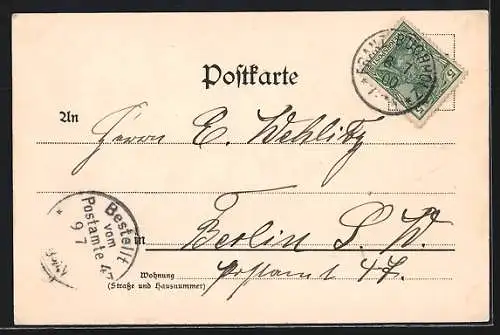 Postkarte
FRANZ. BUCHHOLZ
5
5
00
An
Herrn E. Wehlitz
Bestellt
vom
Postamte 47
9 7
in Berlin S. W.
Postamt 47.
Wohnung
(Straße und Hausnummer)